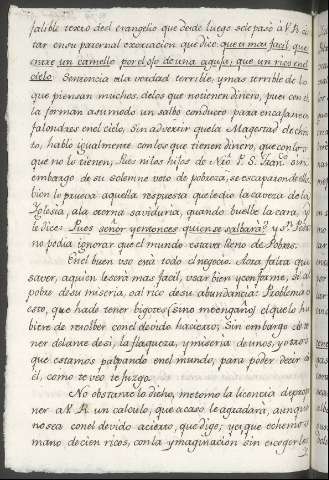 falible texto del evangelio que desde luego se le pasò à V.R. ci
tar en su paternal exortacion que dice que era mas facil, que
entre un camello por el ojo de una aguja; que un rico en el
cielo. Sentencia à la verdad terrible, y mas terrible de lo
que piensan muchos, de los que no tienen dinero, pues con el
la forman asumo do un salbo conducto para encajarse
falondres en el cielo, sin advertir que la Magestad de chris
to, hablo igualmente con los que tienen dinero, que con los
que no lo tienen; Pues ni los hijos de Nrô P. S. Franco. sin
embargo de su solemne voto de pobreza, se escaparon de ella,
bien lo prueva aquella respuesta que le dio la caveza de la
Yglesia, ala eterna saviduria, quando buelbe la cara, y
le dice: Pues señor yentonces quien se salbarà? y Sn. Pedro
no podia ignorar que el mundo estava lleno de Pobres.
En el buen uso està todo el negocio. Aora falta que
saver, aquien le serà mas facil, usar bien y conforme, si al
pobre de su miseria, o al rico de su abundancia: Problema es
este, que hade tener bigotes (si no me engaño) el que lo hu
biere de resolber con el devido hacierto; Sin embargo de te
ner delante de si, la flaqueza, y miseria de unos, y otros
que estamos palpando en el mundo, para poder decir a
él, como te veo te juzgo.
No obstante lo dicho, me tomo la licencia de propo
ner a V.R. un calculo, que acaso le agradarà, aunque
no sea con el devido acierto, que digo; ya que echemos
mano de cien ricos, con la ymaginacion sin escoger los